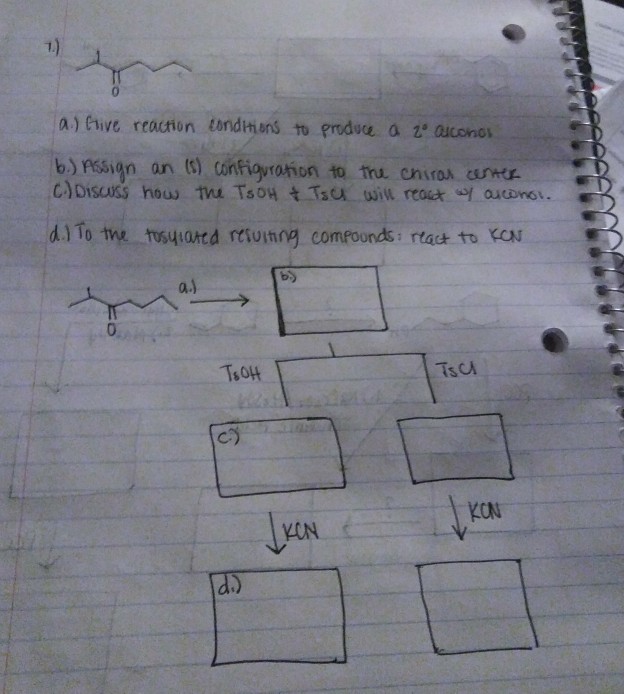 7.)
O
a.) Give reaction conditions to produce a 2° alcohol
b.) Assign an (s) configuration to the chiral center
c.) Discuss how the TsOH & TsCl will react w/ alcohol.
d.) To the tosylated resulting compounds: react to KCN
a.)
b.)
O
TsOH
TsCl
c.)
KCN
KCN
d.)